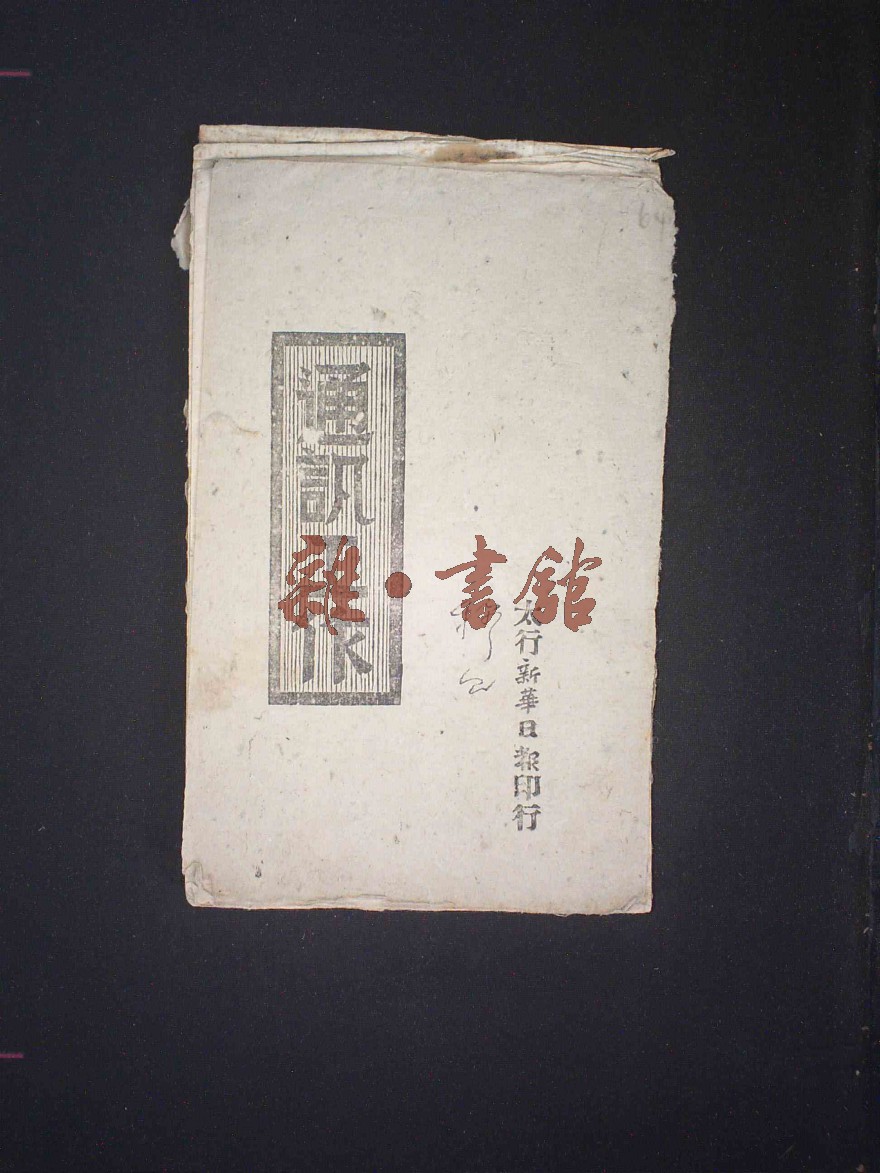 通訊工作
太行新華日報印行
雜·書館
64